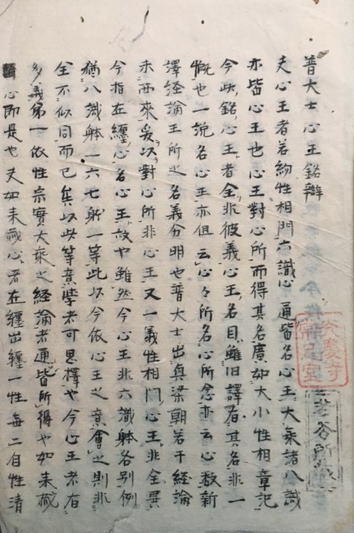 普大士心王銘辯
夫心王者若約性相門六識心通皆名心王大乘諸八識
亦皆心王也心王對心所而得其名廣如大小性相章記
今此銘心王者全非彼義心王名目雖旧譯有其名非一
概也一說名心王亦但云心々所名心所念亦云心数新
譯経論王所之名義分明也普大士出興梁朝若干経論
未西來爰以對心所非心王又一義性相門心王非全異
今指在纏心名心王故也雖然今心王非六識躰各別例
猶八識躰一六七躰一等此以今依心王之意會之則非
全不似同而已矣以此等意学者可思擇也今心王者有
多義第一依性宗實大乘之経論者通皆所得也如来蔵
心即是也又如来蔵心者在纏出纏一性每二自性清